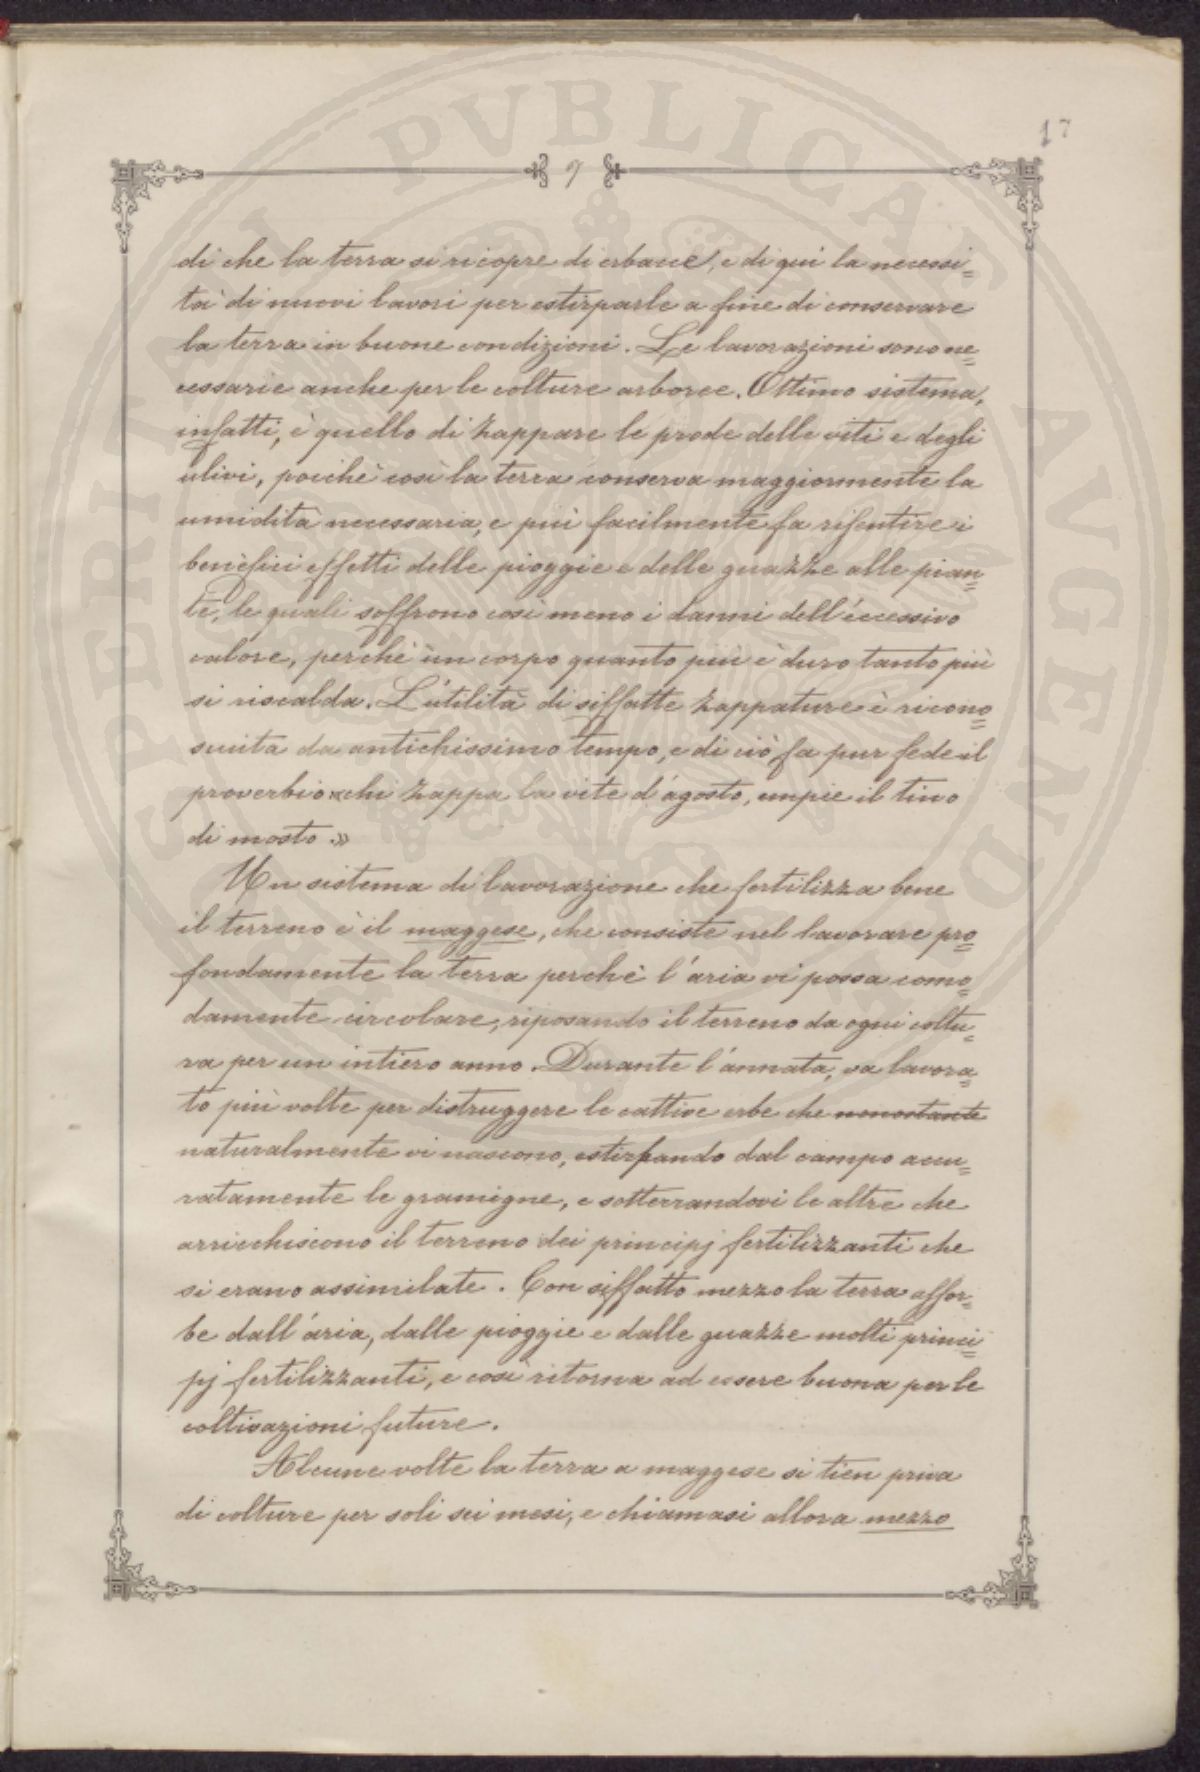 17
9
di che la terra si ricopre di erbacce, e di qui la necessi=
tà di nuovi lavori per estirparle a fine di conservare
la terra in buone condizioni. Le lavorazioni sono ne=
cessarie anche per le colture arboree. Ottimo sistema,
infatti, è quello di zappare le prode delle viti e degli
ulivi, poichè così la terra conserva maggiormente la
umidità necessaria, e più facilmente fa risentire i
benèfici effetti delle pioggie e delle guazze alle pian=
te, le quali soffrono così meno i danni dell'eccessivo
calore, perchè un corpo quanto più è duro tanto più
si riscalda. L'utilità di siffatte zappature è ricono=
sciuta da antichissimo tempo, e di ciò fa pur fede il
proverbio «chi zappa la vite d'agosto, empie il tino
di mosto.»
Un sistema di lavorazione che fertilizza bene
il terreno è il maggese, che consiste nel lavorare pro=
fondamente la terra perchè l'aria vi possa como=
damente circolare, riposando il terreno da ogni coltu=
ra per un intiero anno. Durante l'annata, va lavora=
to più volte per distruggere le cattive erbe che nonostante
naturalmente vi nascono, estirpando dal campo accu=
ratamente le gramigne, e sotterrandovi le altre che
arricchiscono il terreno dei principj fertilizzanti che
si erano assimilate. Con siffatto mezzo la terra assor=
be dall'aria, dalle pioggie e dalle guazze molti princi=
pj fertilizzanti, e così ritorna ad essere buona per le
coltivazioni future.
Alcune volte la terra a maggese si tien priva
di colture per soli sei mesi, e chiamasi allora mezzo